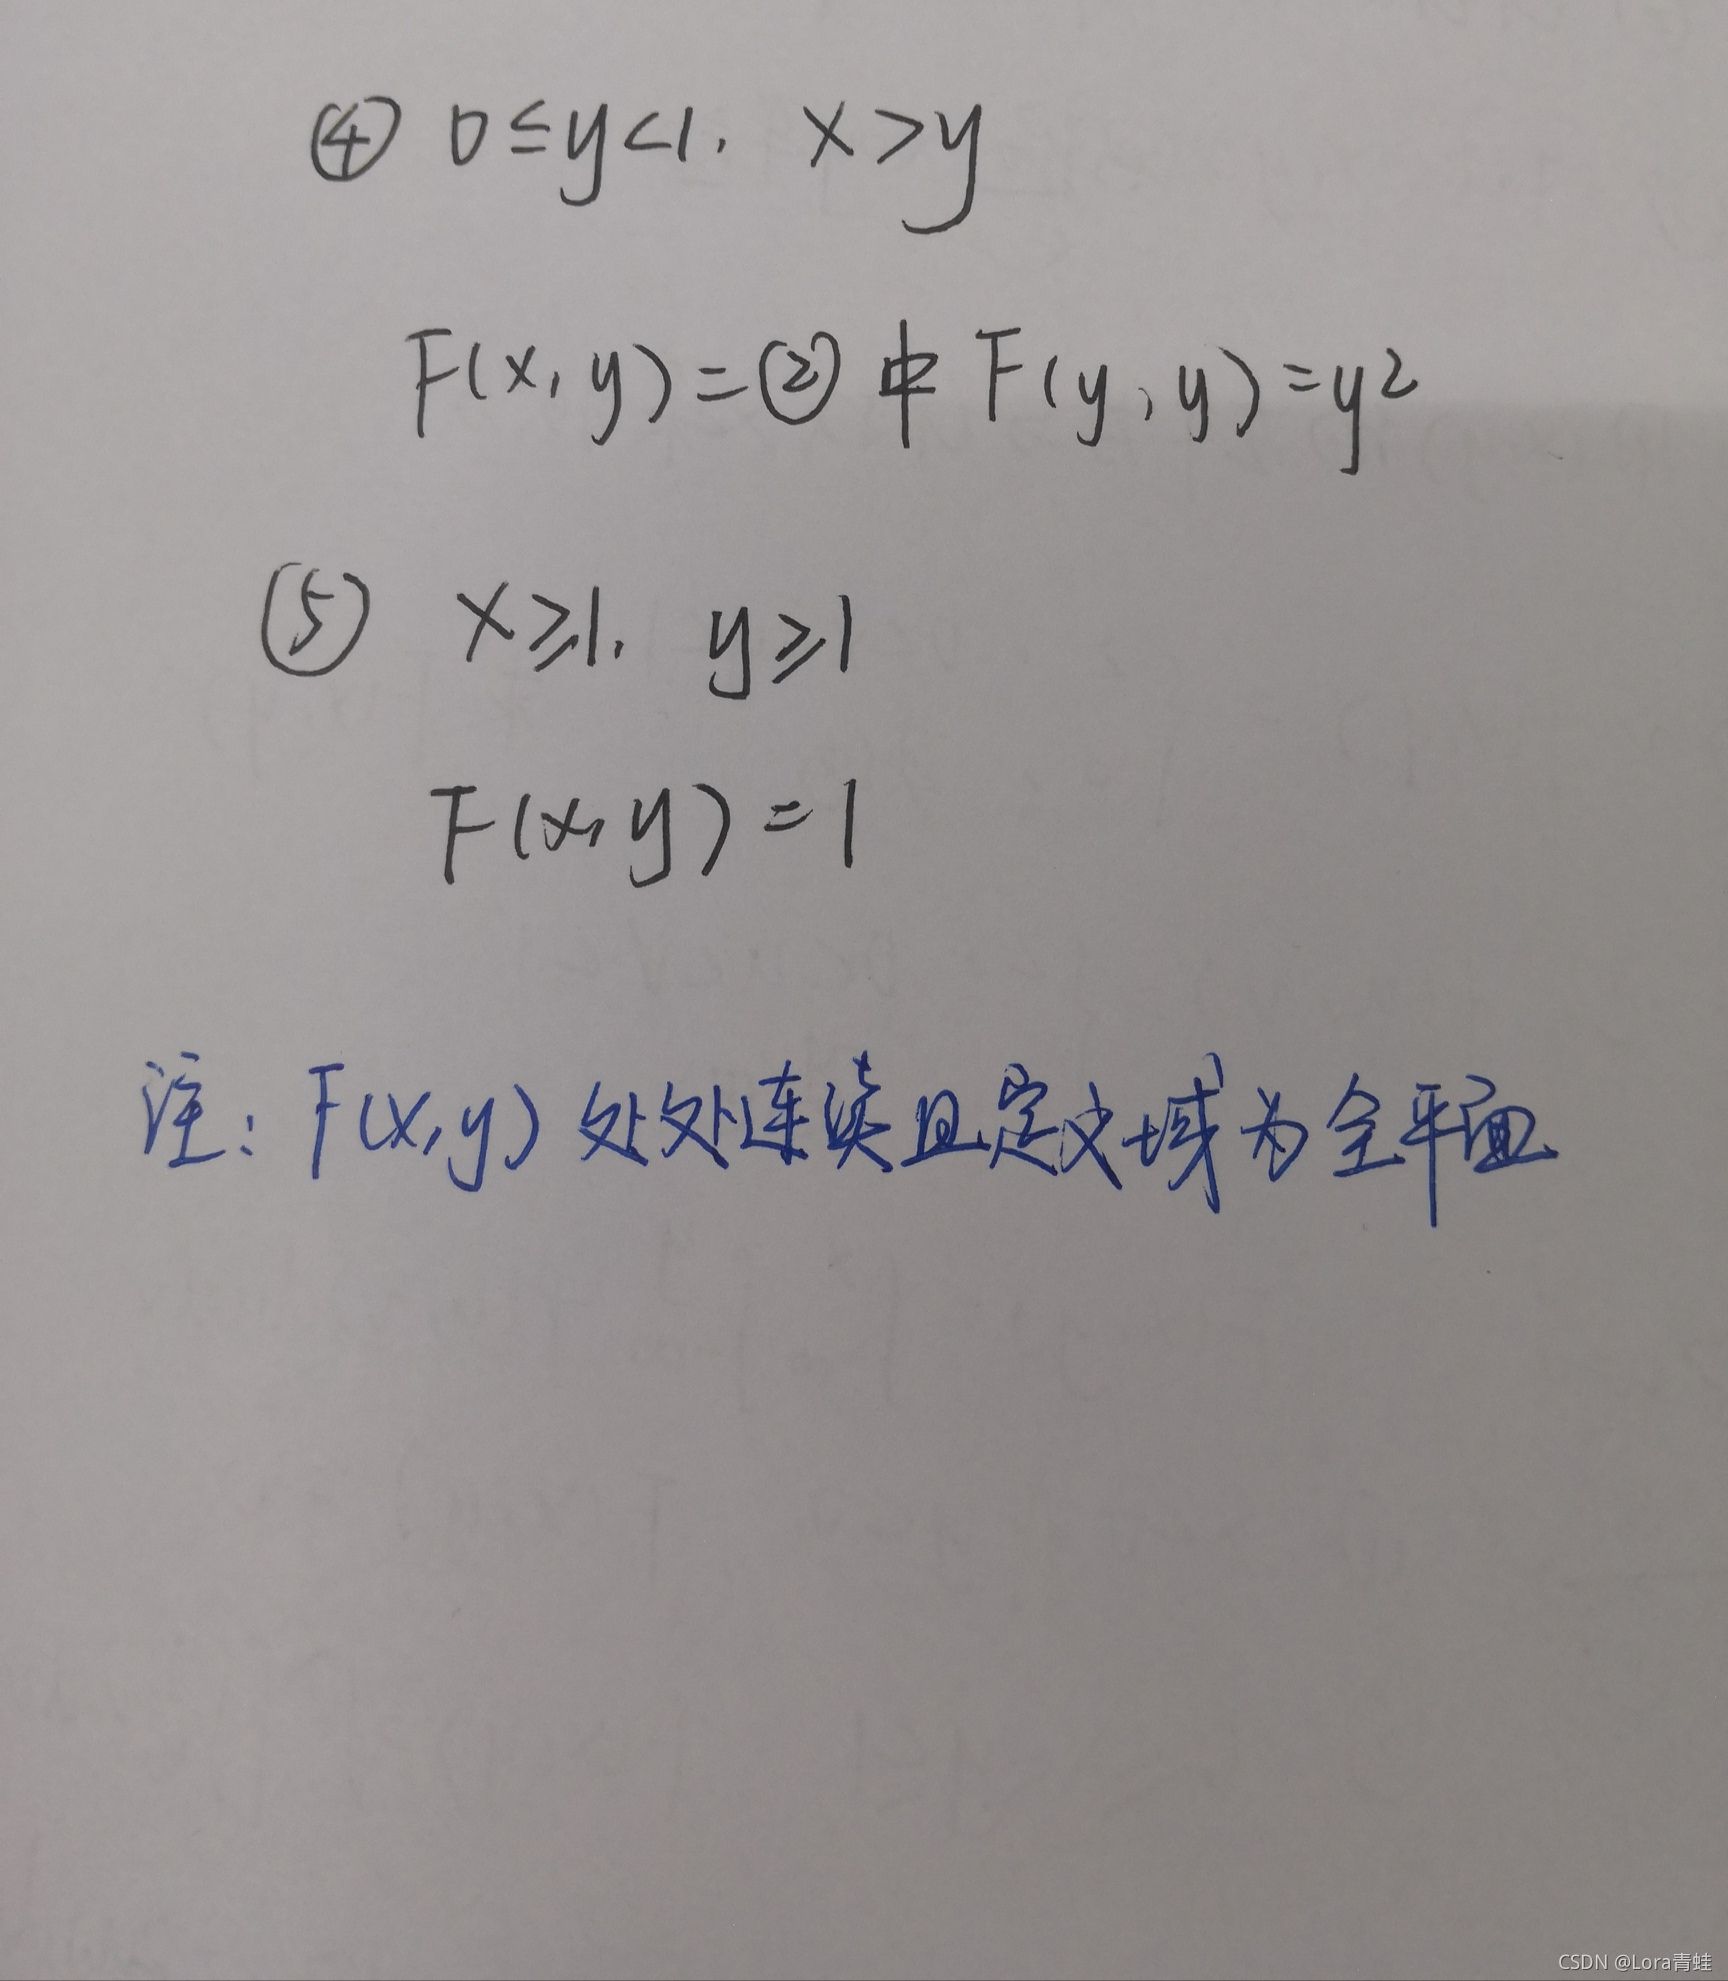 ④ 0≤y<1. x>y
F(x,y)=②中F(y,y)=y²
⑤ x≥1. y≥1
F(x,y)=1
注: F(x,y)处处连续且定义域为全平面
CSDN @Lora青蛙